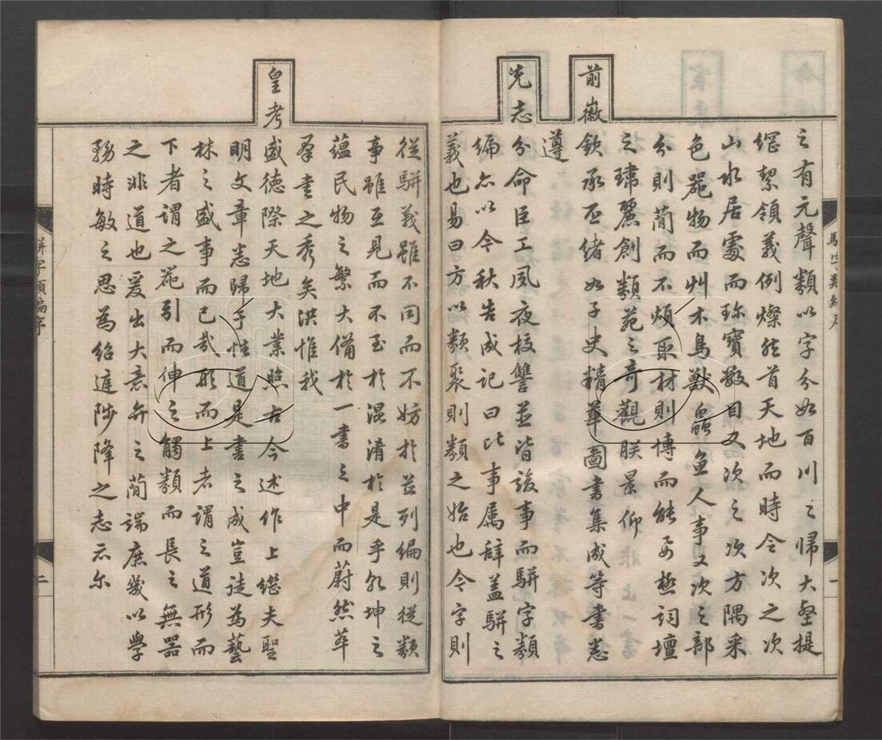 之有元聲類以字分如百川之歸大壑提
綱挈領義例燦然首天地而時令次之次
山水居處而珍寶數目又次之次方隅采
色器物而艸木鳥獸蟲魚人事又次之部
分則簡而不煩取材則博而能要極詞壇
之瑋麗創類苑之奇觀朕景仰
前徽欽承丕緒如子史精華圖書集成等書悉
遵
先志分命臣工夙夜校讐並皆竣事而駢字類
編亦以今秋告成記曰比事屬辭蓋駢之
義也易曰方以類聚則類之始也今字則
從駢義雖不同而不妨於並列編則從類
事雖互見而不至於混淆於是乎乾坤之
蘊民物之繁大備於一書之中而蔚然萃
羣書之秀矣洪惟我
皇考盛德際天地大業照古今述作上繼夫聖
明文章悉歸于性道是書之成豈徒為藝
林之盛事而已哉形而上者謂之道形而
下者謂之器引而伸之觸類而長之無器
之非道也爰出大意弁之簡端庶幾以學
務時敏之思為紹庭陟降之志云尔
駢字類編序
一
駢字類編序
二